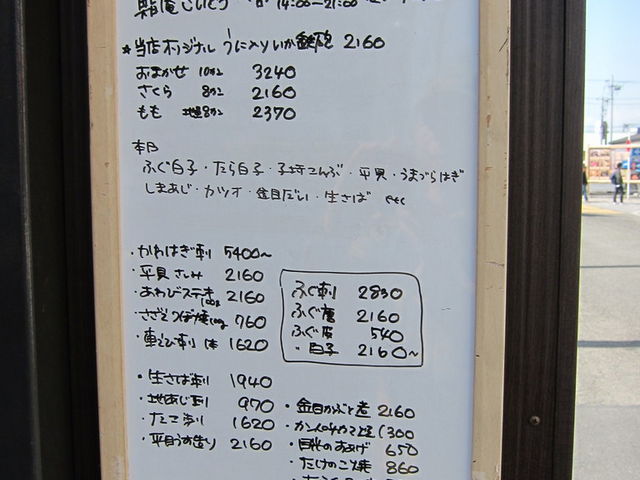 14:00~21:00
★当店オリジナル うに入りいか鉄砲 2160
おまかせ 10カン 3240
さくら 8カン 2160
もも 地魚8カン 2370
本日
ふぐ白子・たら白子・子持こんぶ・平貝・うまづらはぎ
しまあじ・カツオ・金目だい・生さば etc
・かわはぎ刺 5400~
・平貝さしみ 2160
・あわびステーキ 2160
・さざえつぼ焼 760
・車えび刺 1本 1620
ふぐ刺 2830
ふぐ唐 2160
ふぐ皮 540
〃白子 2160~
・生さば刺 1940
・地あじ刺 970
・たこ刺 1620
・平目うす造り 2160
・金目かぶと煮 2160
・カンパチカマ塩 1300
・目光のあげ 650
・たけのこ焼 860